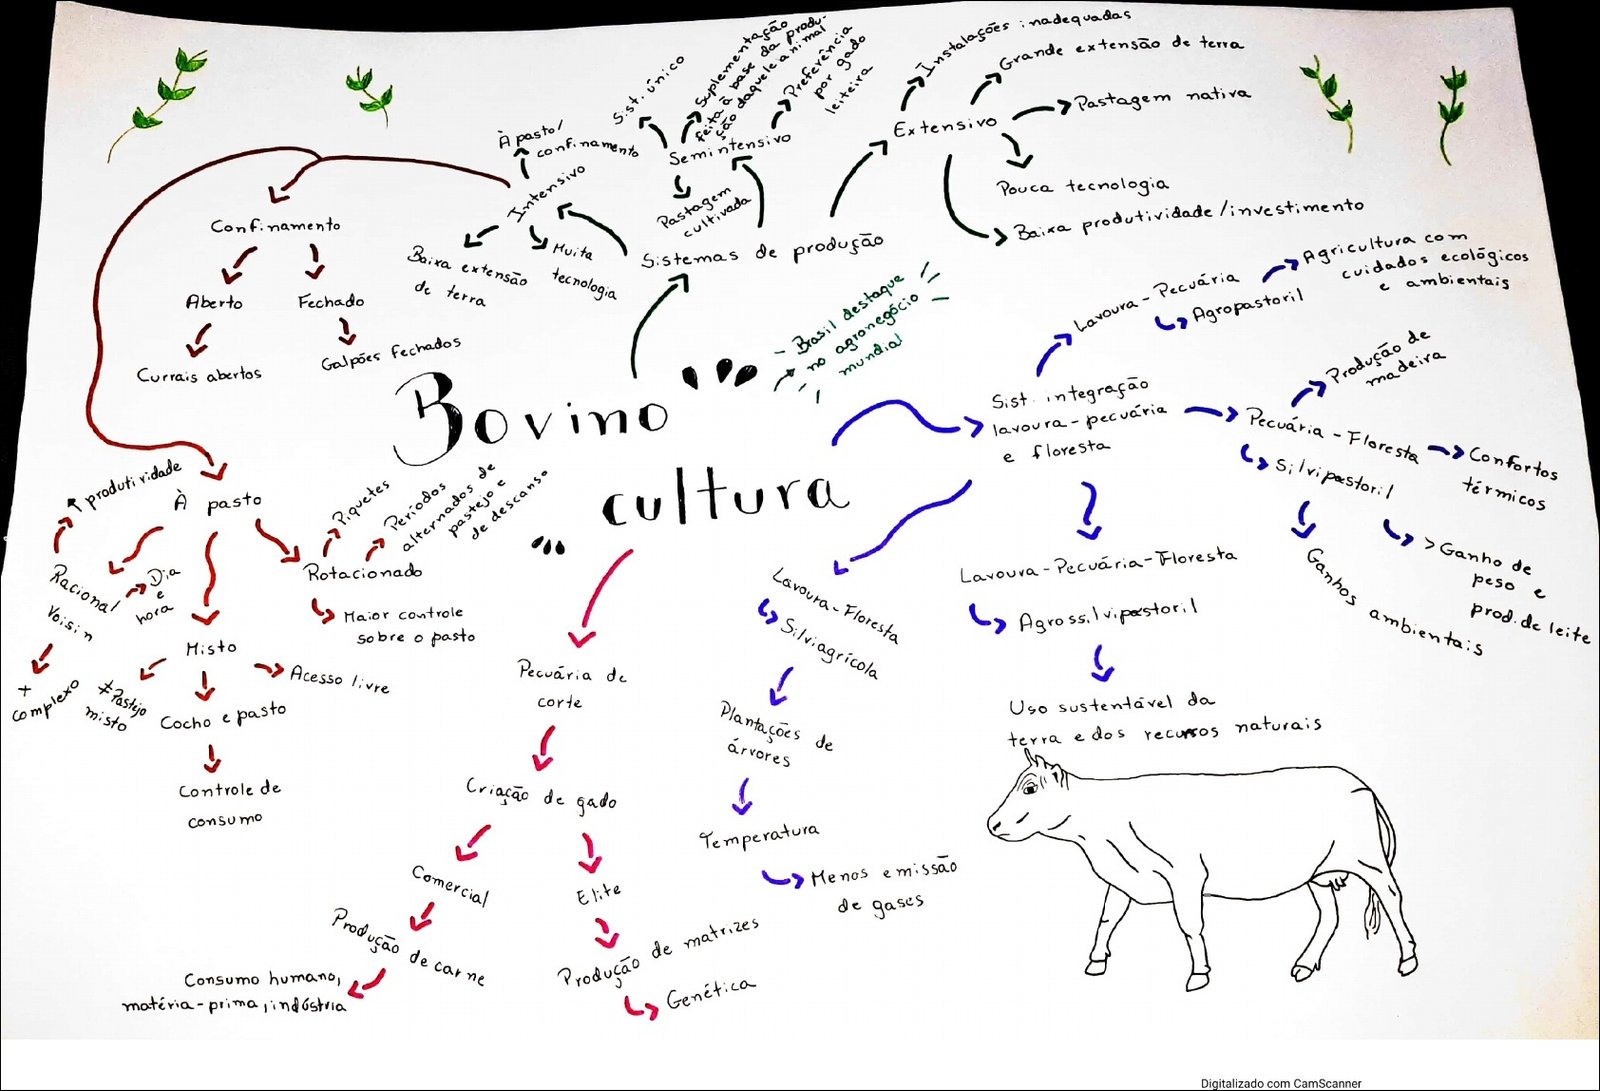 Bovino
cultura
Brasil destaque
no agronegócio
mundial
Sistemas de produção
Intensivo
À pasto/
confinamento
Baixa extensão
de terra
Muita
tecnologia
Semintensivo
Sist. único
Suplementação
feita à base da produ-
ção daquele animal
Preferência
por gado
leiteira
Pastagem
cultivada
Extensivo
Instalações inadequadas
Grande extensão de terra
Pastagem nativa
Pouca tecnologia
Baixa produtividade/investimento
Confinamento
Aberto
Currais abertos
Fechado
Galpões fechados
À pasto
Racional
Voisin
↑ produtividade
Dia
e
hora
+
complexo
Misto
≠ Pastejo
misto
Cocho e pasto
Acesso livre
Controle de
consumo
Rotacionado
Piquetes
Períodos
alternados de
pastejo e
de descanso
Maior controle
sobre o pasto
Pecuária de
corte
Criação de gado
Comercial
Produção de carne
Consumo humano,
matéria-prima, indústria
Elite
Produção de matrizes
Genética
Sist. integração
lavoura-pecuária
e floresta
Lavoura-Pecuária
Agropastoril
Agricultura com
cuidados ecológicos
e ambientais
Pecuária-Floresta
Silvipastoril
Produção de
madeira
Confortos
térmicos
Ganhos ambientais
> Ganho de
peso e
prod. de leite
Lavoura-Pecuária-Floresta
Agrossilvipastoril
Uso sustentável da
terra e dos recursos naturais
Lavoura-Floresta
Silviagrícola
Plantações de
árvores
Temperatura
Menos emissão
de gases
Digitalizado com CamScanner